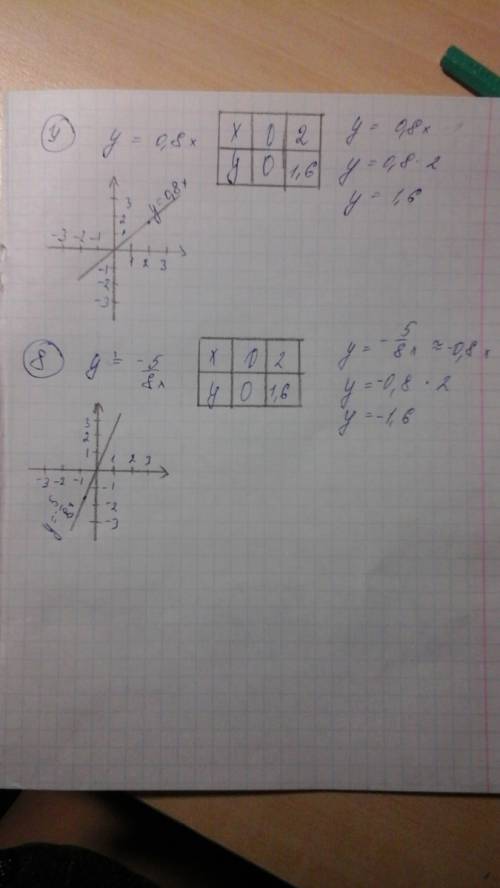 4) y = 0,8x
x 0 2
y 0 1,6
y = 0,8x
y = 0,8 · 2
y = 1,6
3
2
1
-3 -2 -1
1 2 3
-1
-2
-3
y=0,8x
8) y = -5/8x
x 0 2
y 0 1,6
y = -5/8x ≈ -0,8x
y = -0,8 · 2
y = -1,6
3
2
1
-3 -2 -1
1 2 3
-1
-2
-3